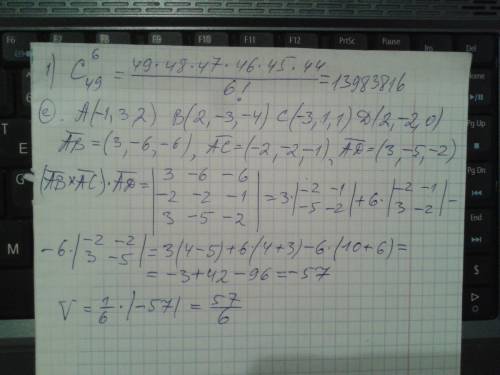 F6 F7 F8 F9 F10 F11 F12 PrtSc Pause Delete Home
1) C₄₉⁶ = (49·48·47·46·45·44)/6! = 13983816
2. A(-1,3,2) B(2,-3,-4) C(-3,1,1) D(2,-2,0)
AB̅ = (3,-6,-6), AC̅ = (-2,-2,-1), AD̅ = (3,-5,-2)
(AB̅×AC̅)·AD̅ = |3 -6 -6; -2 -2 -1; 3 -5 -2| = 3·|-2 -1; -5 -2| + 6·|-2 -1; 3 -2| -
-6·|-2 -2; 3 -5| = 3(4-5)+6·(4+3)-6·(10+6) =
= -3+42-96 = -57
V = 1/6·|-57| = 57/6
Pg Up
Pg Dn
End